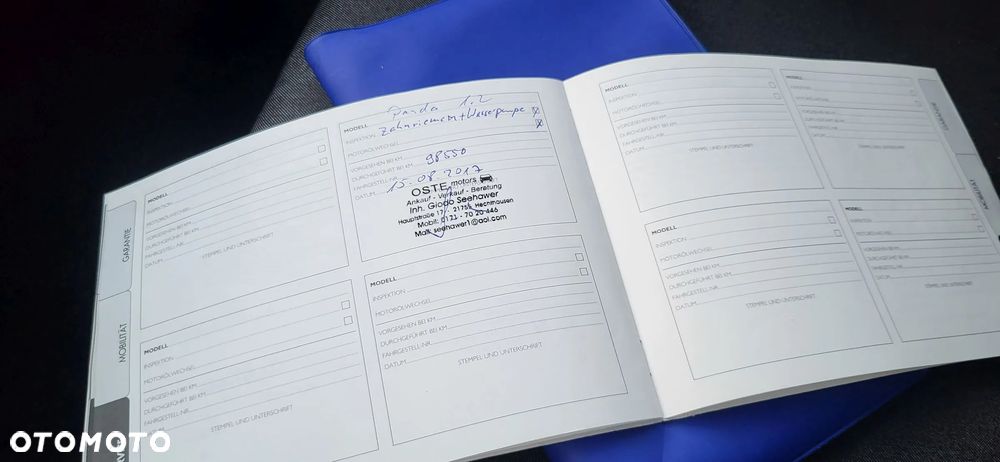 GARANTIE
MOBILITÄT
MODELL
INSPEKTION
MOTORÖLWECHSEL
VORGESEHEN BEI KM
DURCHGEFÜHRT BEI KM
FAHRGESTELL-NR.
DATUM
STEMPEL UND UNTERSCHRIFT
MODELL
INSPEKTION
MOTORÖLWECHSEL
VORGESEHEN BEI KM
DURCHGEFÜHRT BEI KM
FAHRGESTELL-NR.
DATUM
STEMPEL UND UNTERSCHRIFT
MODELL Panda 1.2
INSPEKTION Zahnriemen + Wasserpumpe
MOTORÖLWECHSEL
VORGESEHEN BEI KM
DURCHGEFÜHRT BEI KM 98550
FAHRGESTELL-NR.
DATUM 15.08.2017
OSTE motors
Ankauf - Verkauf - Beratung
Inh. Giodo Seehawer
Hauptstraße 17 - 21755 Hechthausen
Mobil: 0171 - 70 20 446
Mail: seehawer1@aol.com
MODELL
INSPEKTION
MOTORÖLWECHSEL
VORGESEHEN BEI KM
DURCHGEFÜHRT BEI KM
FAHRGESTELL-NR.
DATUM
STEMPEL UND UNTERSCHRIFT
MODELL
INSPEKTION
MOTORÖLWECHSEL
VORGESEHEN BEI KM
DURCHGEFÜHRT BEI KM
FAHRGESTELL-NR.
DATUM
STEMPEL UND UNTERSCHRIFT
MODELL
INSPEKTION
MOTORÖLWECHSEL
VORGESEHEN BEI KM
DURCHGEFÜHRT BEI KM
FAHRGESTELL-NR.
DATUM
STEMPEL UND UNTERSCHRIFT
MODELL
INSPEKTION
MOTORÖLWECHSEL
VORGESEHEN BEI KM
DURCHGEFÜHRT BEI KM
FAHRGESTELL-NR.
DATUM
STEMPEL UND UNTERSCHRIFT
MODELL
INSPEKTION
MOTORÖLWECHSEL
VORGESEHEN BEI KM
DURCHGEFÜHRT BEI KM
FAHRGESTELL-NR.
DATUM
STEMPEL UND UNTERSCHRIFT
GARANTIE
MOBILITÄT
OTOMOTO